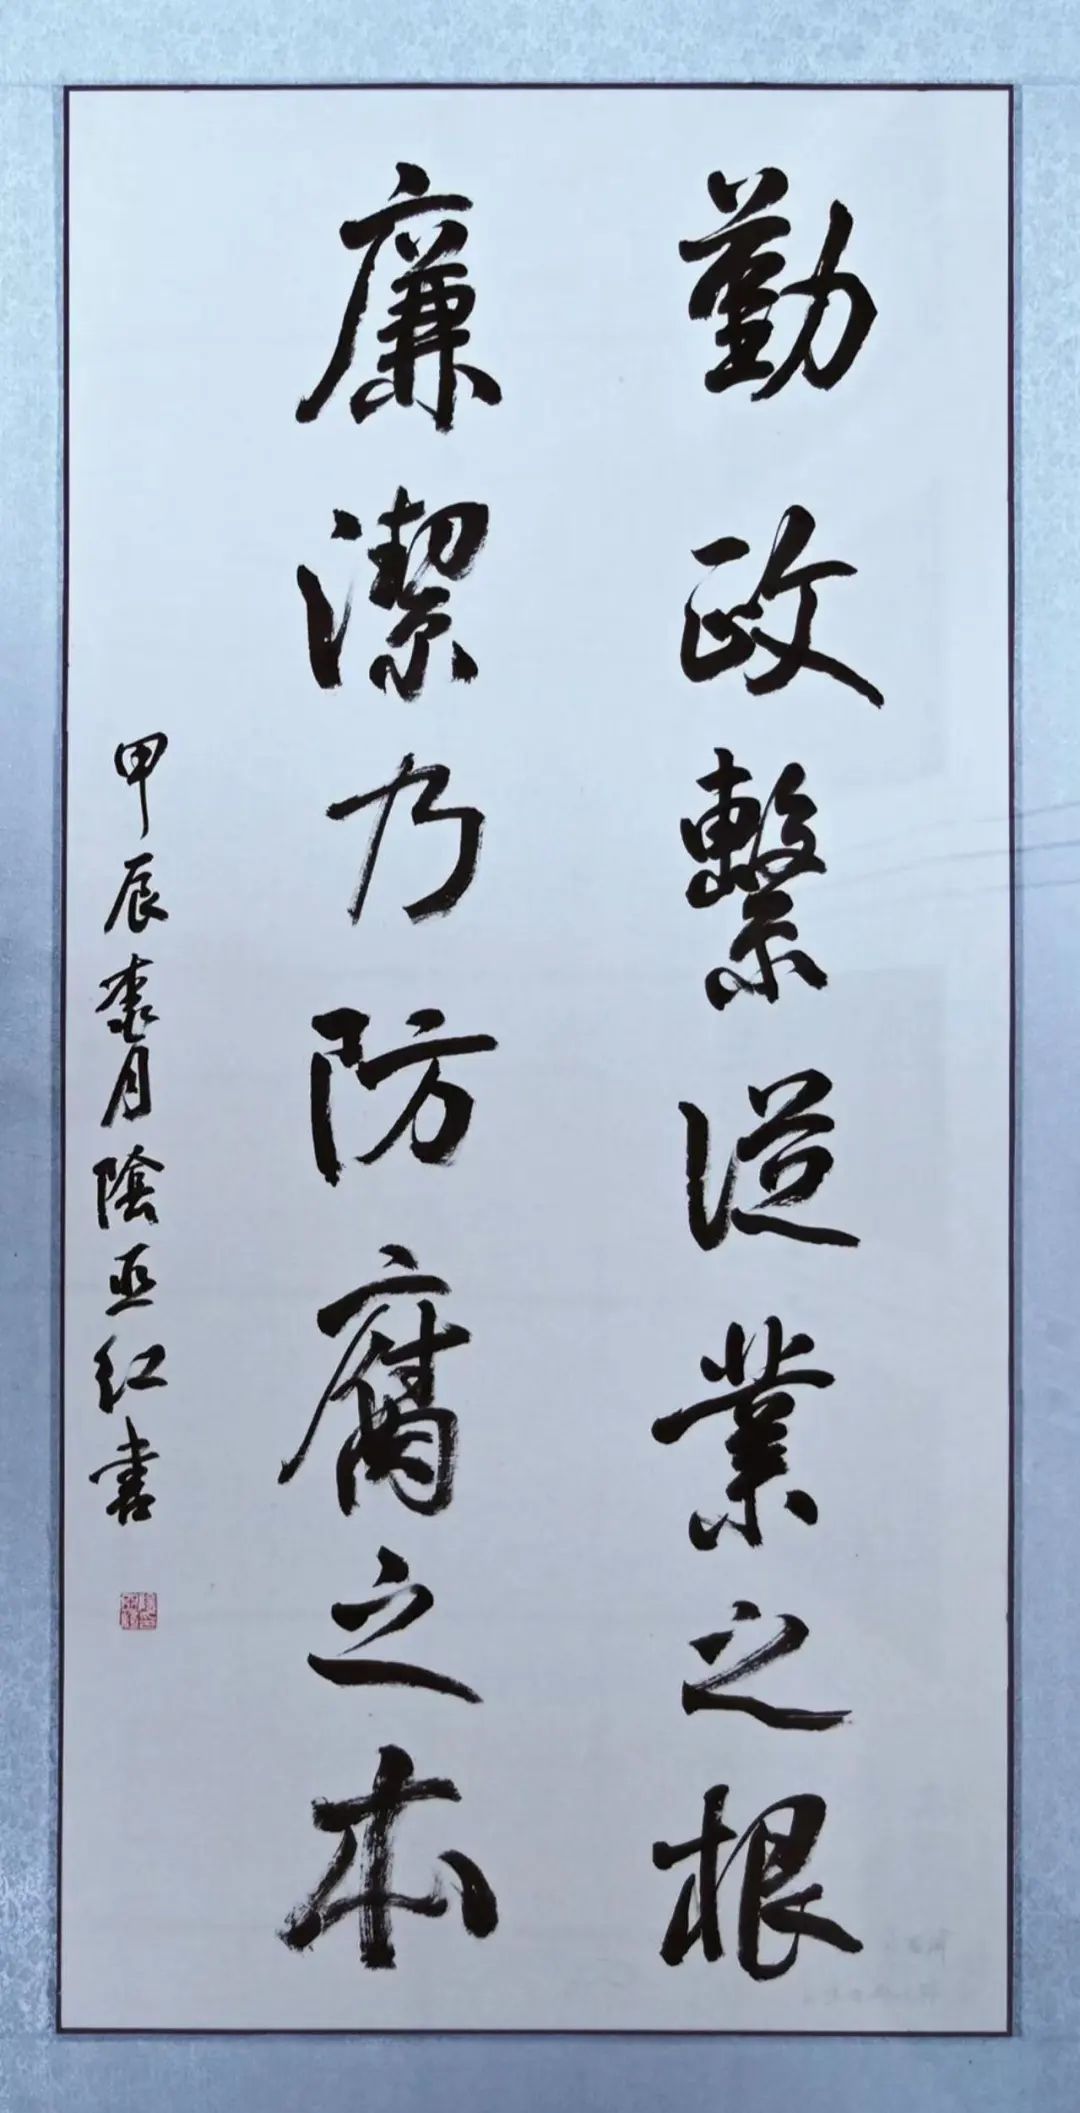 勤政繫從業之根
廉潔乃防腐之本
甲辰臺月陰亞红書